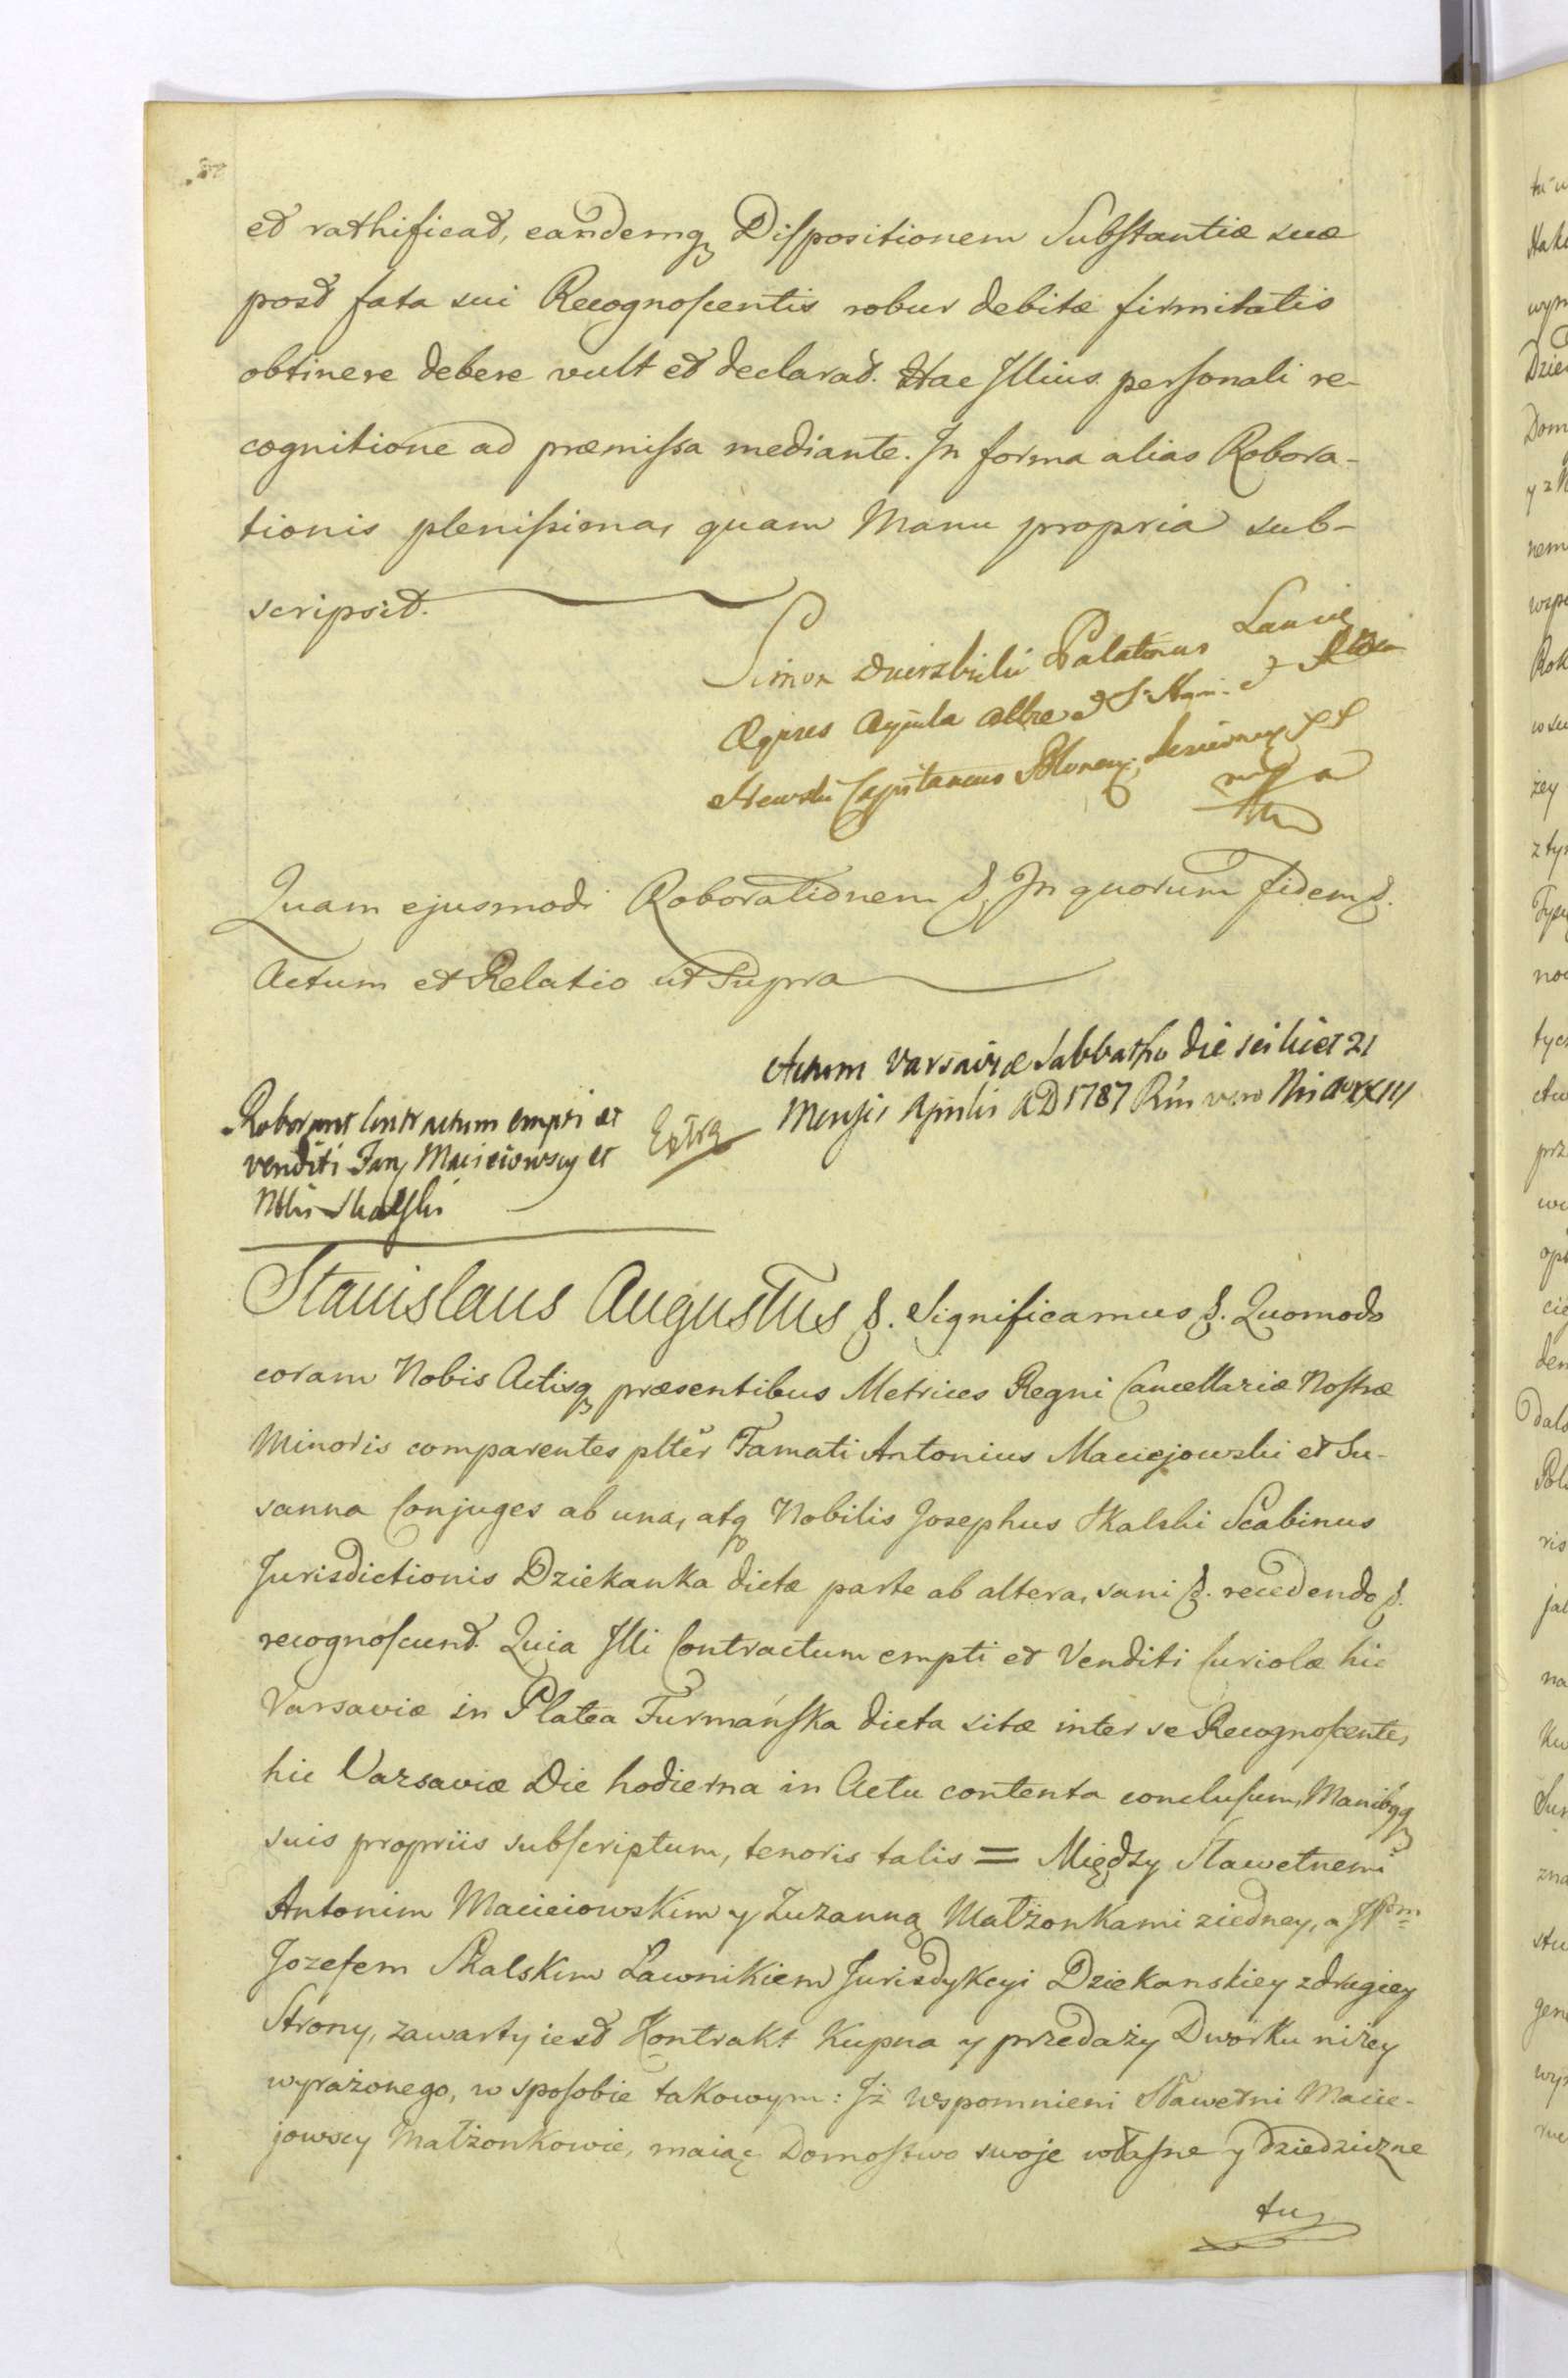 et rathificat, eandemq Dispositionem Substantiæ suæ
post fata sui Recognoscentis robur debitæ firmitatis
obtinere debere vult et declarat. Hac Illius personali re-
cognitione ad præmissa mediante. In forma alias Robora-
tionis plenissima, quam Manu propria sub-
scripsit.
Simon Palatinus
Aquila Capitaneus
Quam ejusmodi Roborationem &. In quorum fidem &.
Actum et Relatio ut Supra
Actum Varsaviæ Sabbatho die scilicet 21
Mensis Aprilis AD 1787 Rni vero Nri XXIII
Roborant Contractum empti et
venditi Fam Macieiowscy et
Nblis Skalski
Extra
Stanislaus Augustus &. Significamus &. Quomodo
coram Nobis Actisq præsentibus Metrices Regni Cancellariæ Nostræ
Minoris comparentes plter Famati Antonius Maciejowski et Su-
sanna Conjuges ab una, atq Nobilis Josephus Skalski Scabinus
Jurisdictionis Dziekanka dictæ parte ab altera, sani &. recedendo &.
recognoscunt. Quia Illi Contractum empti et Venditi Curiolæ hic
Varsaviæ in Platea Furmańska dicta sitæ inter se Recognoscentes
hic Varsaviæ Die hodierna in Actu contenta conclusum, Manibqq
suis propriis subscriptum, tenoris talis = Między Sławetnemi
Antonim Macieiowskim y Zuzanną Małżonkami ziedney, a JPm
Jozefem Skalskim Ławnikiem Jurisdykcyi Dziekanskiey zdrugiey
Strony, zawarty iest Kontrakt Kupna y przedaży Dworku niżey
wyrażonego, w sposobie takowym: Iż wspomnieni Sławetni Macie-
jowscy Małżonkowie, maiąc Domostwo swoje własne y dziedziczne
tu